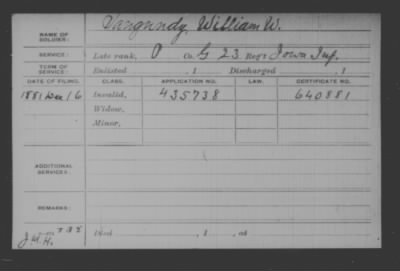 NAME OF SOLDIER: Vangundy, William W.
SERVICE: Late rank, P Co. G 23 Reg't Iowa Inf.
TERM OF SERVICE: Enlisted , 1 Discharged , 1
DATE OF FILING. CLASS. APPLICATION NO. LAW. CERTIFICATE NO.
1881 Dec 16 Invalid, 435738 640881
Widow,
Minor,
ADDITIONAL SERVICES:
REMARKS:
Died , 1 , at
J.M.H.